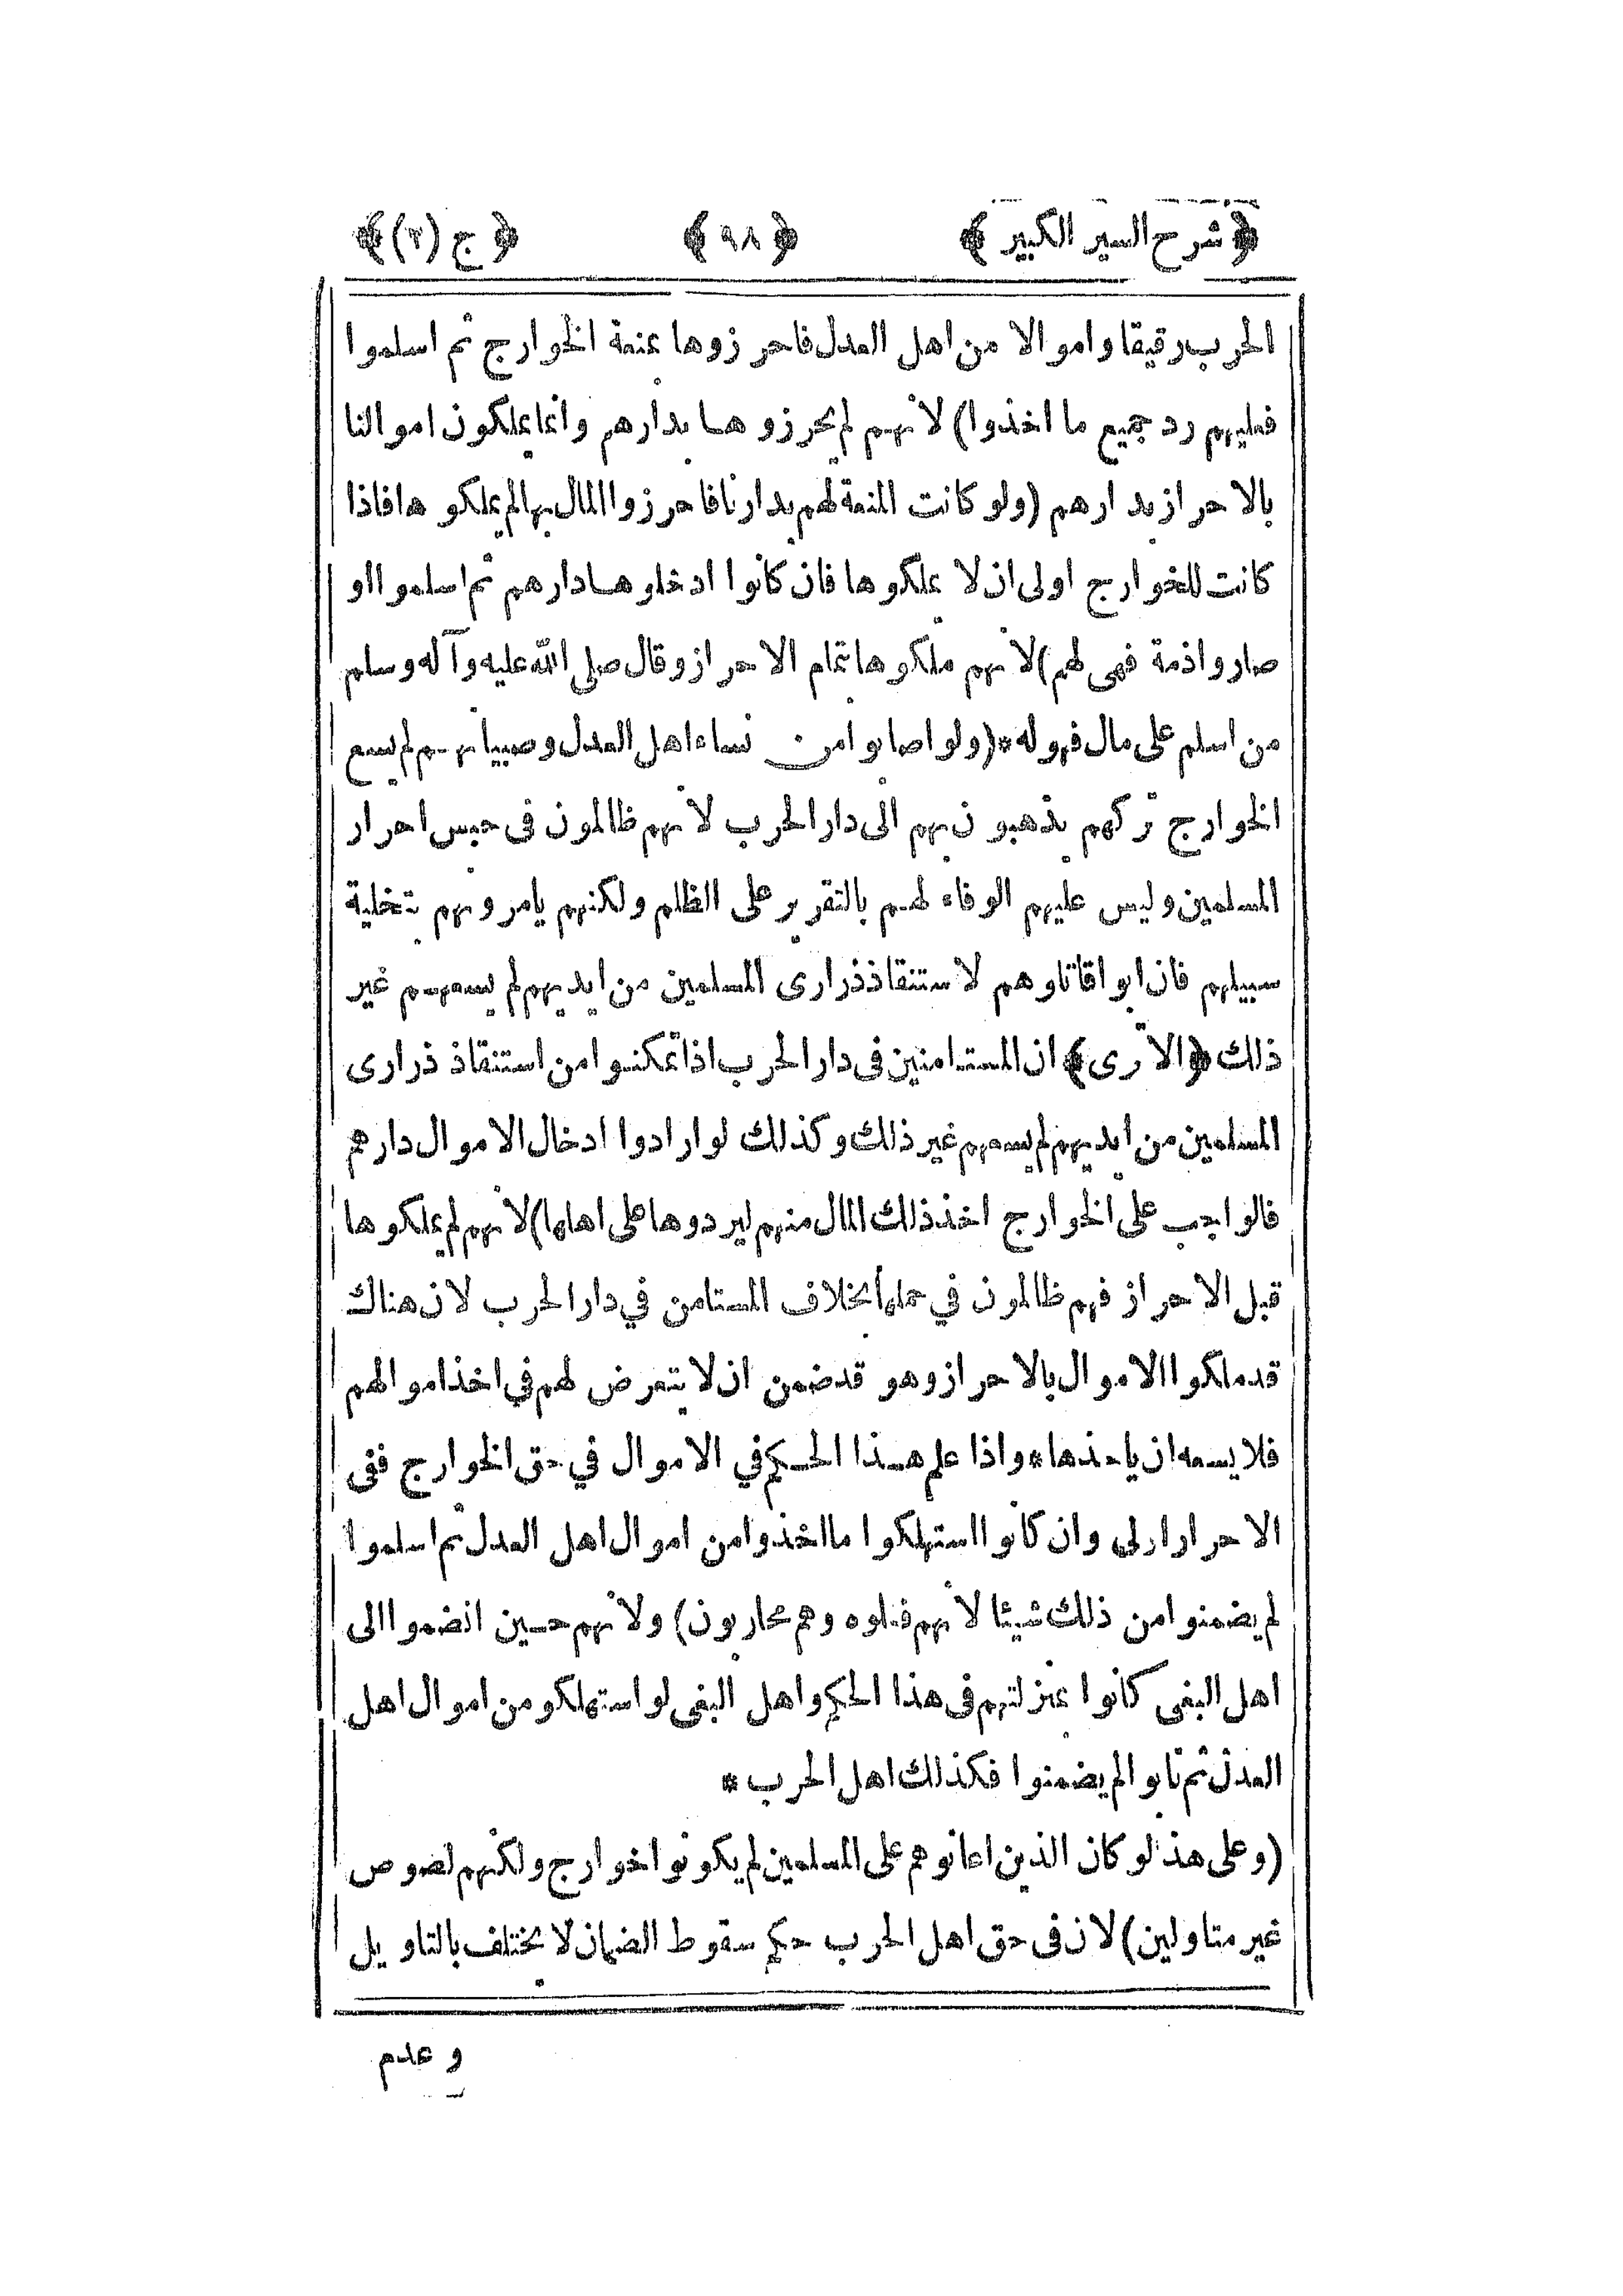 ﴿ شرح السير الكبير ﴾ ﴿ ٩٨ ﴾ ﴿ ج (٢) ﴾
الحرب رقيقا واموالا من اهل العدل فاحرزوها بمنعة الخوارج ثم اسلموا
فعليهم رد جميع ما اخذوا) لانهم لم يحرزوها بدارهم وانما يملكون اموالنا
بالاحراز بدارهم (ولو كانت المنعة لهم بدارنا فاحرزوا المال بها لم يملكوها فاذا
كانت للخوارج اولى ان لا يملكوها فان كانوا ادخلوها دارهم ثم اسلموا او
صاروا ذمة فهى لهم) لانهم ملكوها بتمام الاحراز وقال صلى الله عليه وآله وسلم
من اسلم على مال فهو له * (ولو اصابوا من نساء اهل العدل وصبيانهم لم يسع
الخوارج تركهم يذهبون بهم الى دار الحرب لانهم ظالمون فى حبس احرار
المسلمين وليس عليهم الوفاء لهم بالتقرير على الظلم ولكنهم يامرونهم بتخلية
سبيلهم فان ابوا قاتلوهم لاستنقاذ ذرارى المسلمين من ايديهم لم يسعهم غير
ذلك ﴿الا ترى﴾ ان المستامنين فى دار الحرب اذا تمكنوا من استنقاذ ذرارى
المسلمين من ايديهم لم يسعهم غير ذلك وكذلك لو ارادوا ادخال الاموال دارهم
فالواجب على الخوارج اخذ ذلك المال منهم ليردوها على اهلها) لانهم لم يملكوها
قبل الاحراز فهم ظالمون في حملها بخلاف المستامن في دار الحرب لان هناك
قد ملكوا الاموال بالاحراز وهو قد ضمن ان لا يتعرض لهم في اخذ اموالهم
فلا يسعه ان ياخذها * واذا علم هذا الحكم في الاموال في حق الخوارج ففى
الاحرار اولى وان كانوا استهلكوا ما اخذوا من اموال اهل العدل ثم اسلموا
لم يضمنوا من ذلك شيئا لانهم فعلوه وهم محاربون) ولانهم حين انضموا الى
اهل البغى كانوا بمنزلتهم فى هذا الحكم واهل البغى لو استهلكو من اموال اهل
العدل ثم تابوا لم يضمنوا فكذلك اهل الحرب *
(وعلى هذ لو كان الذين اعانوهم على المسلمين لم يكونوا خوارج ولكنهم لصوص
غير متاولين) لان فى حق اهل الحرب حكم سقوط الضمان لا يختلف بالتاويل
وعدم